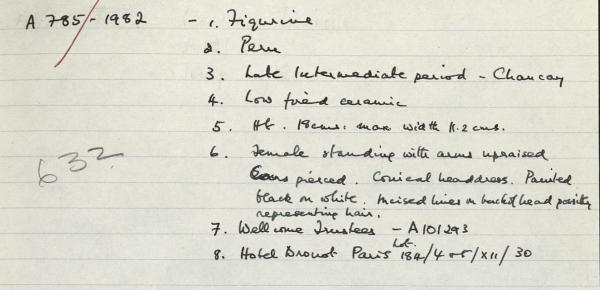 A 785-1982 - 1. Figurine
2. Peru
3. Late Intermediate period - Chancay
4. Low fired ceramic
5. Ht. 18cms: max width 11.2 cms.
6. Female standing with arms upraised
Ears pierced. Conical headdress. Painted
black on white. Incised lines on back of head possibly
representing hair.
632
7. Wellcome Trustees - A101293
8. Hotel Drouot Paris Lot. 184/4 + 5/XII/30